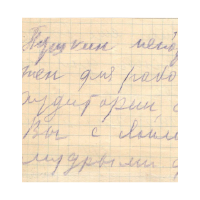 Пушкин необ
жен для рабо
аудитории с
Вы с
мудрыми